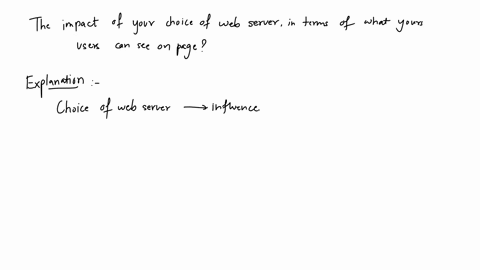 The impact of your choice of web server, in terms of what yours
users can see on page?
Explanation :-
Choice of web server → Influence